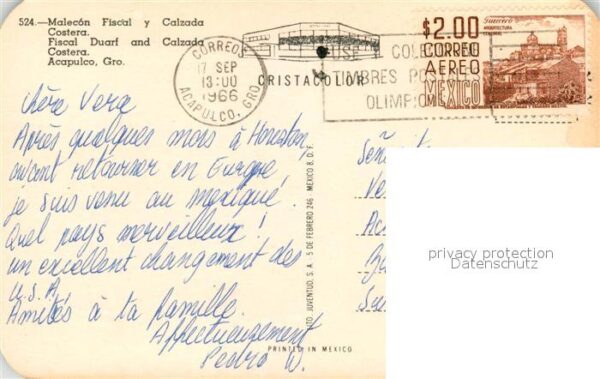 524.—Malecón Fiscal y Calzada
Costera.
Fiscal Duarf and Calzada
Costera.
Acapulco, Gro.
CORREOS
17 SEP
13:00
1966
ACAPULCO, GRO.
CRISTACOLOR
USE Y COLEC
TIMBRES PO
OLIMPICO
Guerrero
ARQUITECTURA
COLONIAL
$2.00
CORREO
AEREO
MEXICO
chère Vera
Après quelques mois à Houston,
avant retourner en Europe,
je suis venu au mexique.
Quel pays merveilleux!
un excellent changement des
U.S.A.
Amitiés à ta famille.
Affectueusement
Pedro W.
JUVENTUD, S. A. 5 DE FEBRERO 246 MEXICO 8, D. F.
PRINTED IN MEXICO
Señ
Ve
Ac
Su
privacy protection
Datenschutz